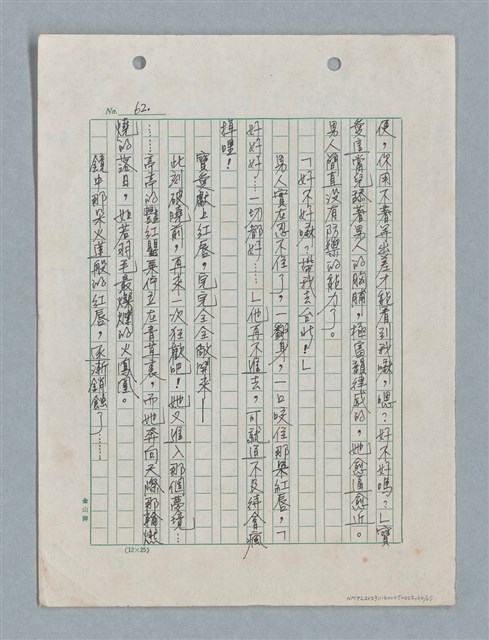 No. 62.
便，你用不著等出差才能看到我嘛，嗯？好不好嗎？」寶
愛這當兒舔著男人的胸脯，極富韻律感的，她愈逼愈近。
男人簡直沒有防禦的能力了。
「好不好嘛？帶我去台北！」
男人實在忍不住了，一翻身，一口咬住那朵紅唇，「
好好好……一切都好……」他再不進去，可就迫不及待會瘋
掉哩！
寶愛獻上紅唇，完完全全敞開來——
此刻破曉前，再來一次狂歡吧！她又進入那個夢境…
……亭亭的豔紅罌粟佇立在青草裏，而她奔向天際那輪燃
燒的落日，她若羽毛最燦爛的火鳳凰。
鏡中那朵火蓮般的紅唇，逐漸銷蝕了………
金山牌
(12×25)